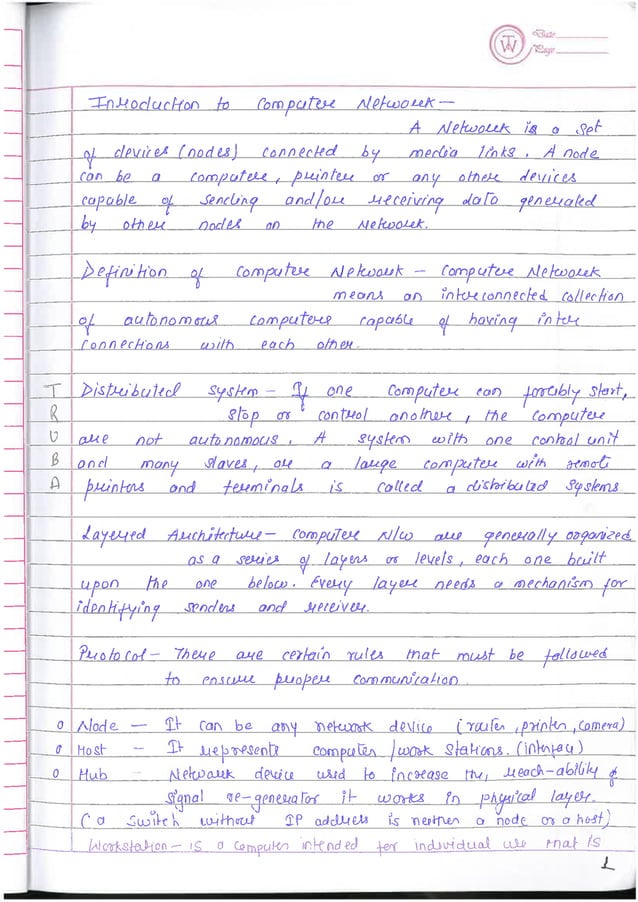 TW
Date
Page
Introduction to Computer Network —
A Network is a set
of devices (nodes) connected by media links. A node
can be a computer, printer or any other devices
capable of sending and/or receiving data generated
by other nodes on the Network.
Definition of Computer Network — Computer Network
means an interconnected collection
of autonomous computers capable of having inter
connections with each other.
T Distributed system — If one computer can forcibly start,
R stop or control another, the computer
U are not autonomous. A system with one control unit
B and many slaves, or a large computer with remote
A printers and terminals is called a distributed systems
Layered Architecture — Computer N/w are generally organized
as a series of layers or levels, each one built
upon the one below. Every layer needs a mechanism for
identifying senders and receiver.
Protocol — There are certain rules that must be followed
to ensure proper communication.
o Node — It can be any network device (router, printer, camera)
o Host — It represents computer/work stations. (interface)
o Hub — Network device used to increase the, reach-ability of
signal re-generator it works in physical layer.
(a switch without IP address is neither a node or a host)
Workstation — is a computer intended for individual use that is
1